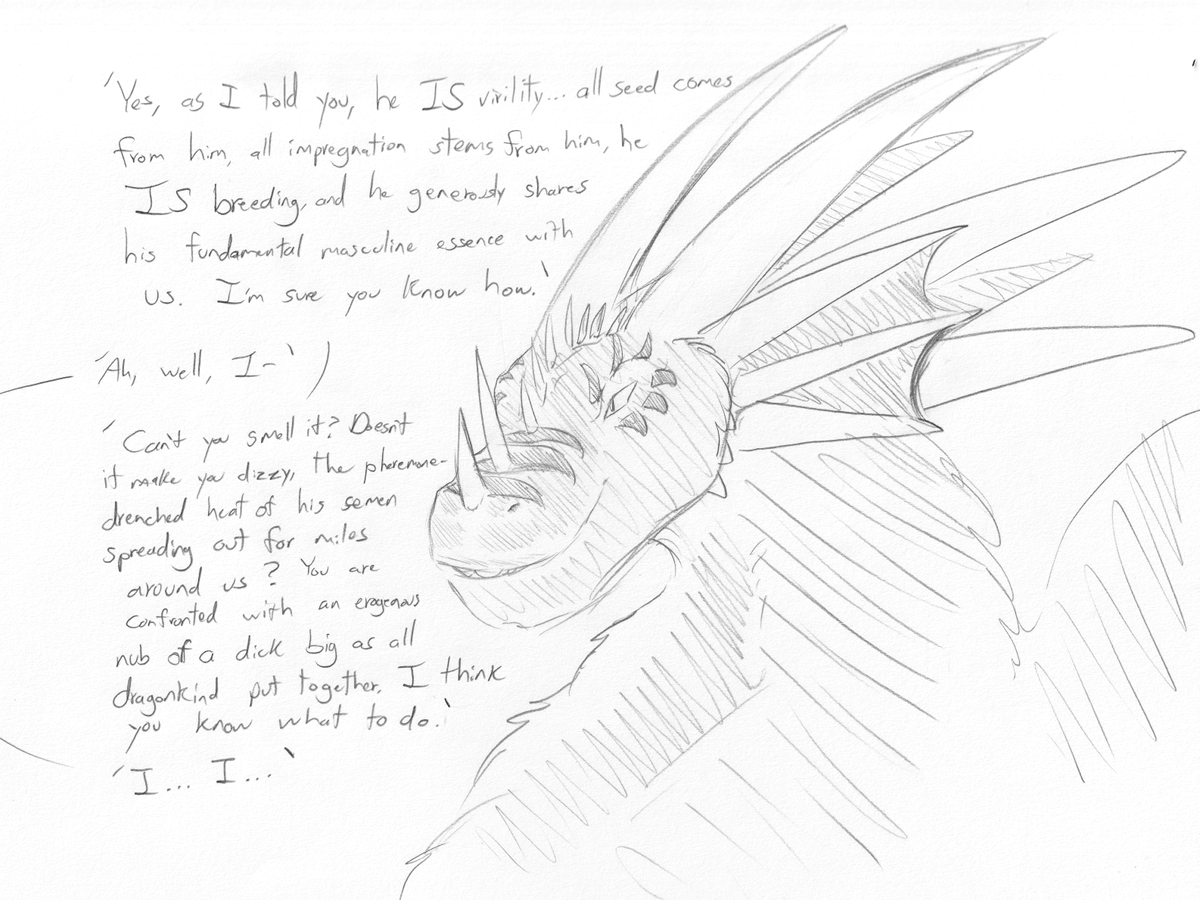 'Yes, as I told you, he IS virility... all seed comes
from him, all impregnation stems from him, he
IS breeding, and he generously shares
his fundamental masculine essence with
us. I'm sure you know how.'
'Ah, well, I-'
'Can't you smell it? Doesn't
it make you dizzy, the pheremone-
drenched heat of his semen
spreading out for miles
around us? You are
confronted with an erogenous
nub of a dick big as all
dragonkind put together. I think
you know what to do.'
'I... I...'